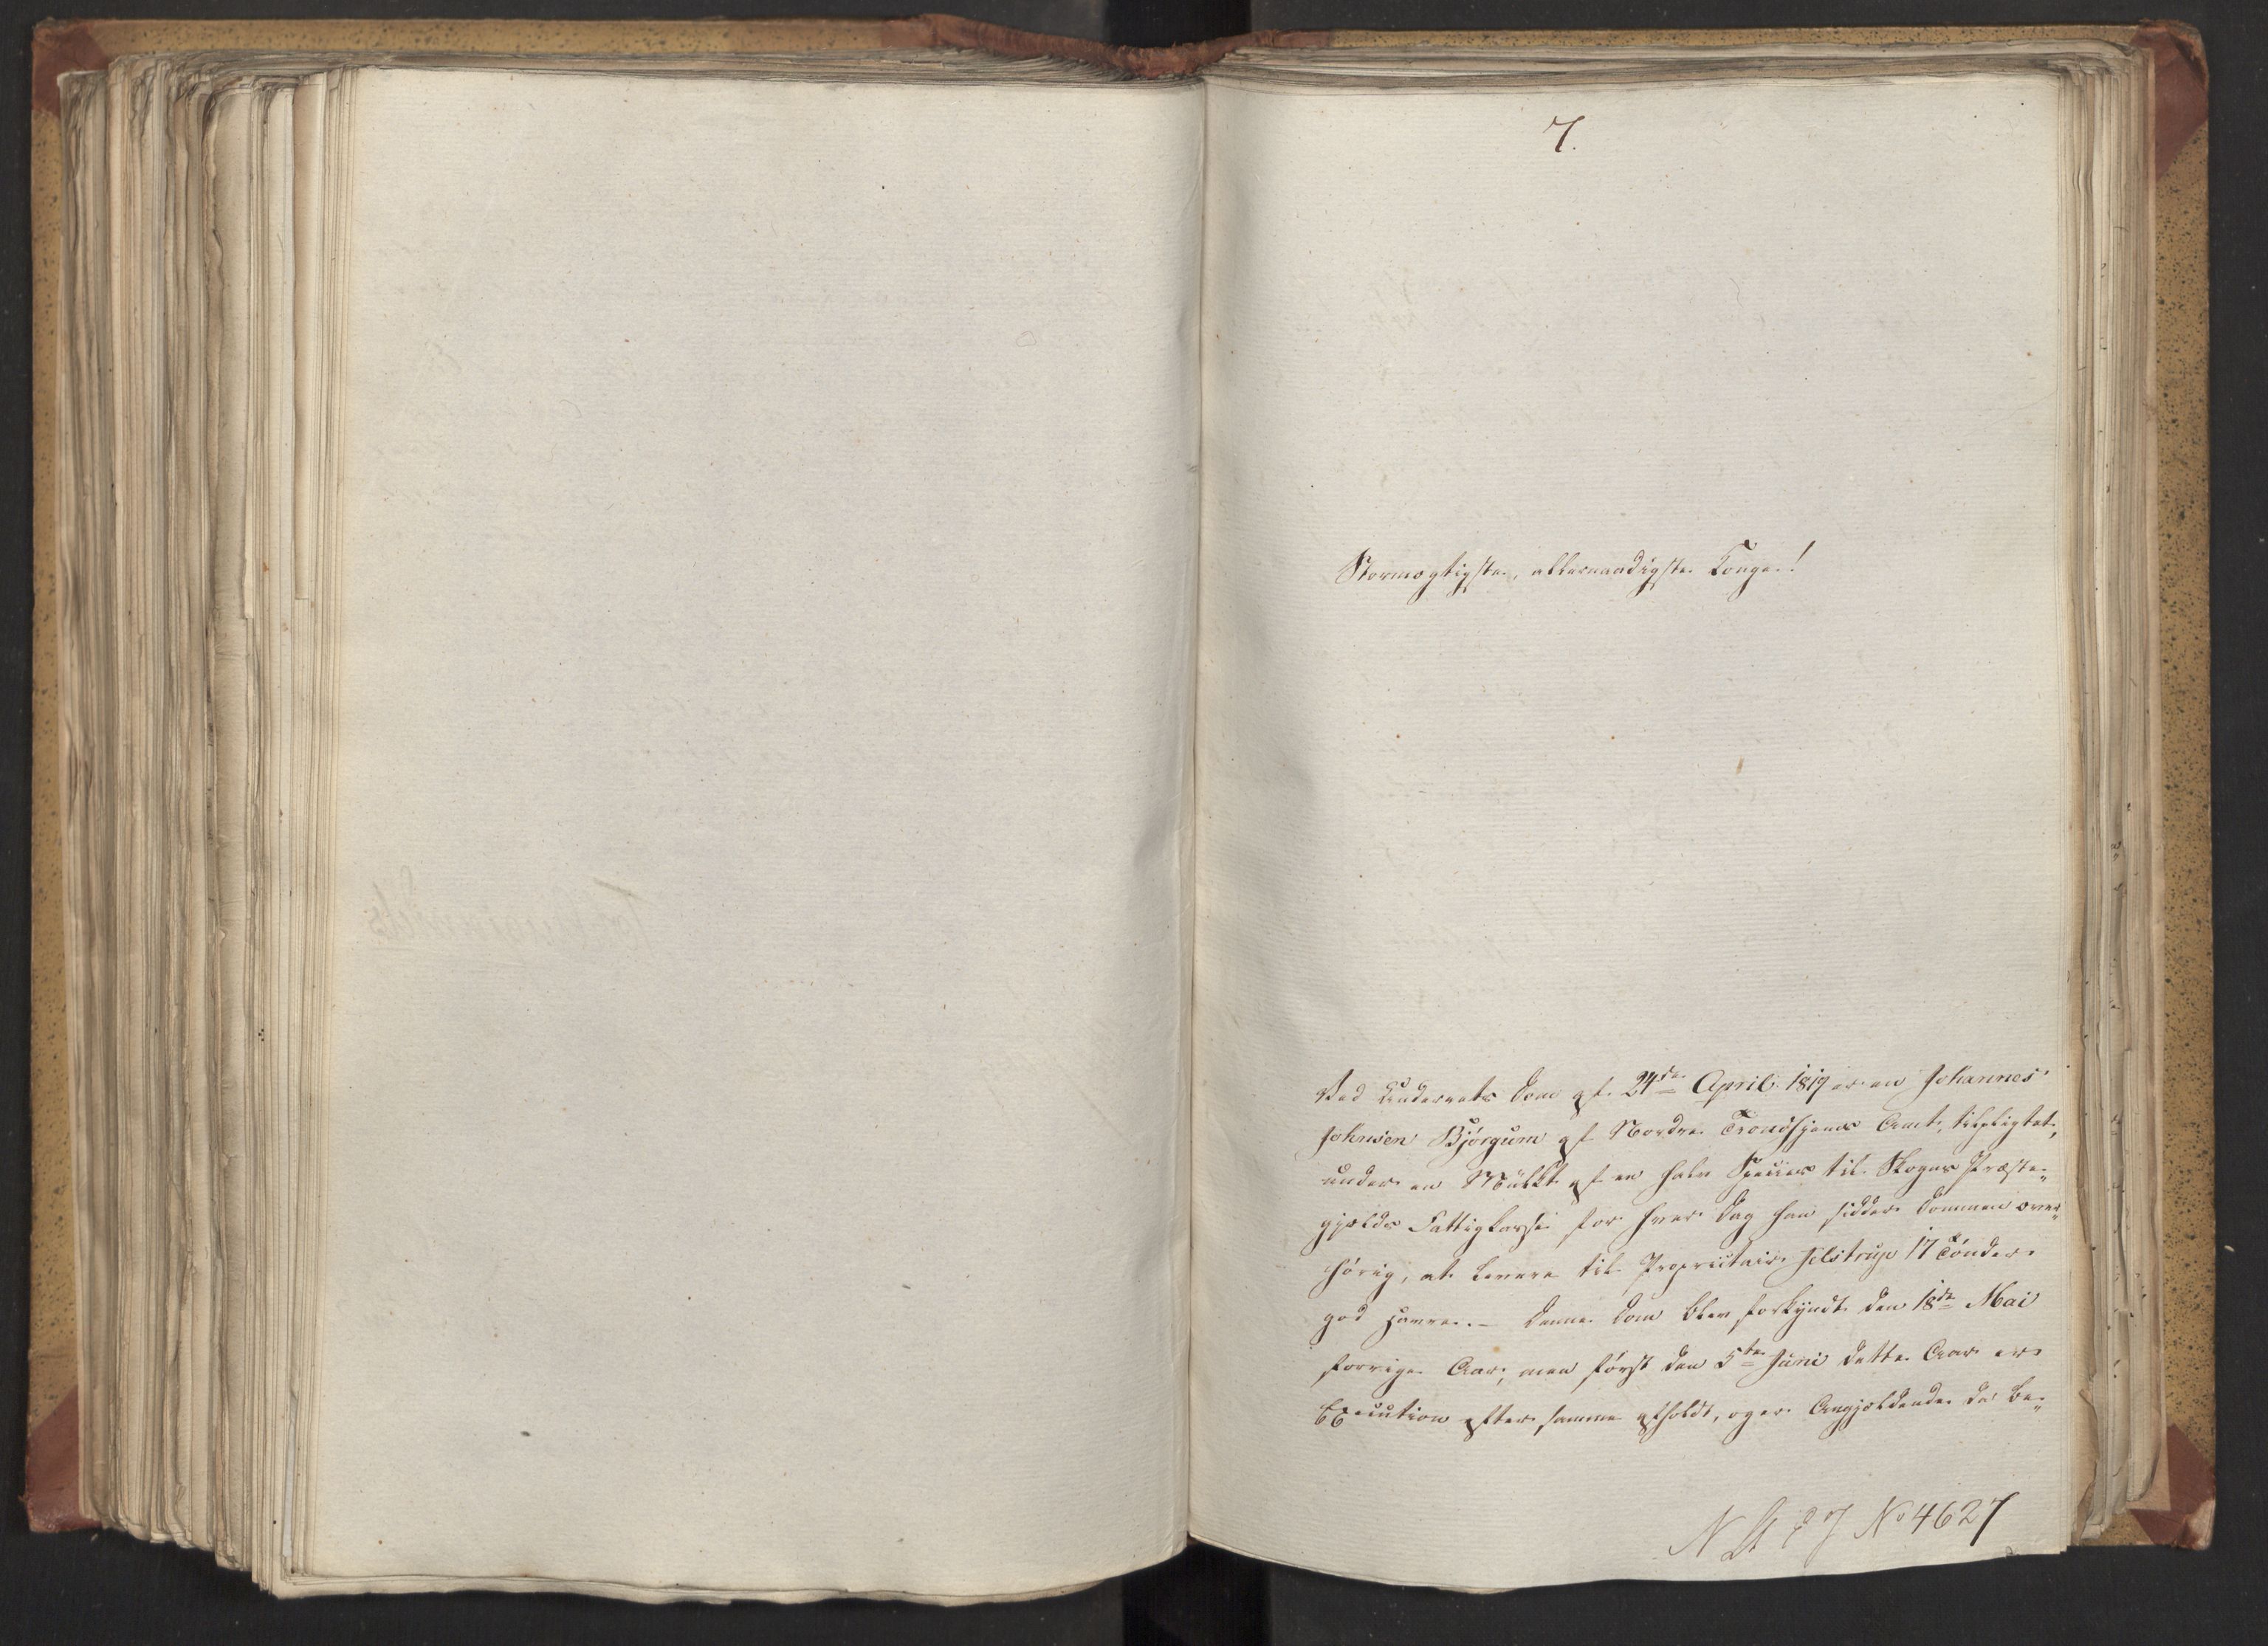 7.
Stormægtigste, allernaadigste Konge!
Ved Underrets Dom af 24de April 1819 er en Johannes
Johnsen Bjørgum af Nordre Trondhjems Amt, tilpligtet,
under en Mulkt af en halv Species til Skogns Præste„
gjelds Fattigkasse for hver Dag han sidder Dommen over„
hørig, at levere til Proprietair Jelstrup 17 Tønder
god Havre. – Denne Dom blev forkyndt den 18de Mai
forrige Aar, men først den 5te Juni dette Aar er
Execution efter samme afholdt, og er Angjeldende da be„
N St P J No 4627